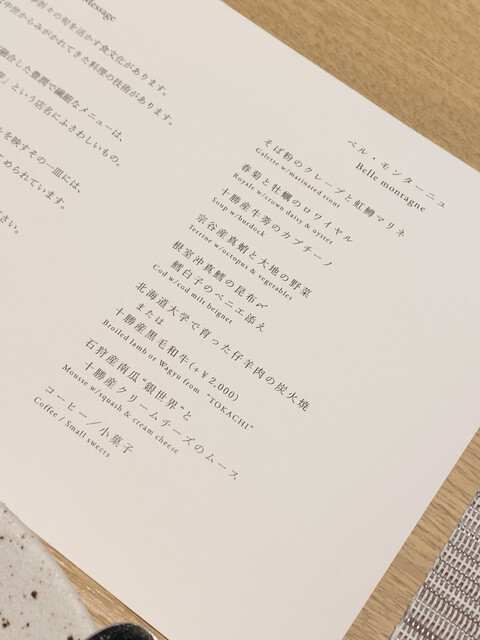 Message
季折々の旬を活かす食文化があります。
中世からみがかれてきた料理の技術があります。
融合した豊潤で繊細なメニューは、
」という店名にふさわしいもの。
を映すその一皿には、
められています。
ださい。
ベル・モンターニュ
Belle montagne
そば粉のクレープと虹鱒マリネ
Galette w/marinated trout
春菊と牡蠣のロワイヤル
Royale w/crown daisy & oyster
十勝産牛蒡のカプチーノ
Soup w/burdock
宗谷産真蛸と大地の野菜
Terrine w/octopus & vegetables
根室沖真鱈の昆布〆
鱈白子のベニエ添え
Cod w/cod milt beignet
北海道大学で育った仔羊肉の炭火焼
または
十勝産黒毛和牛(+￥2,000)
Broiled lamb or Wagyu from "TOKACHI"
石狩産南瓜“銀世界”と
十勝産クリームチーズのムース
Mousse w/squash & cream cheese
コーヒー／小菓子
Coffee / Small sweets